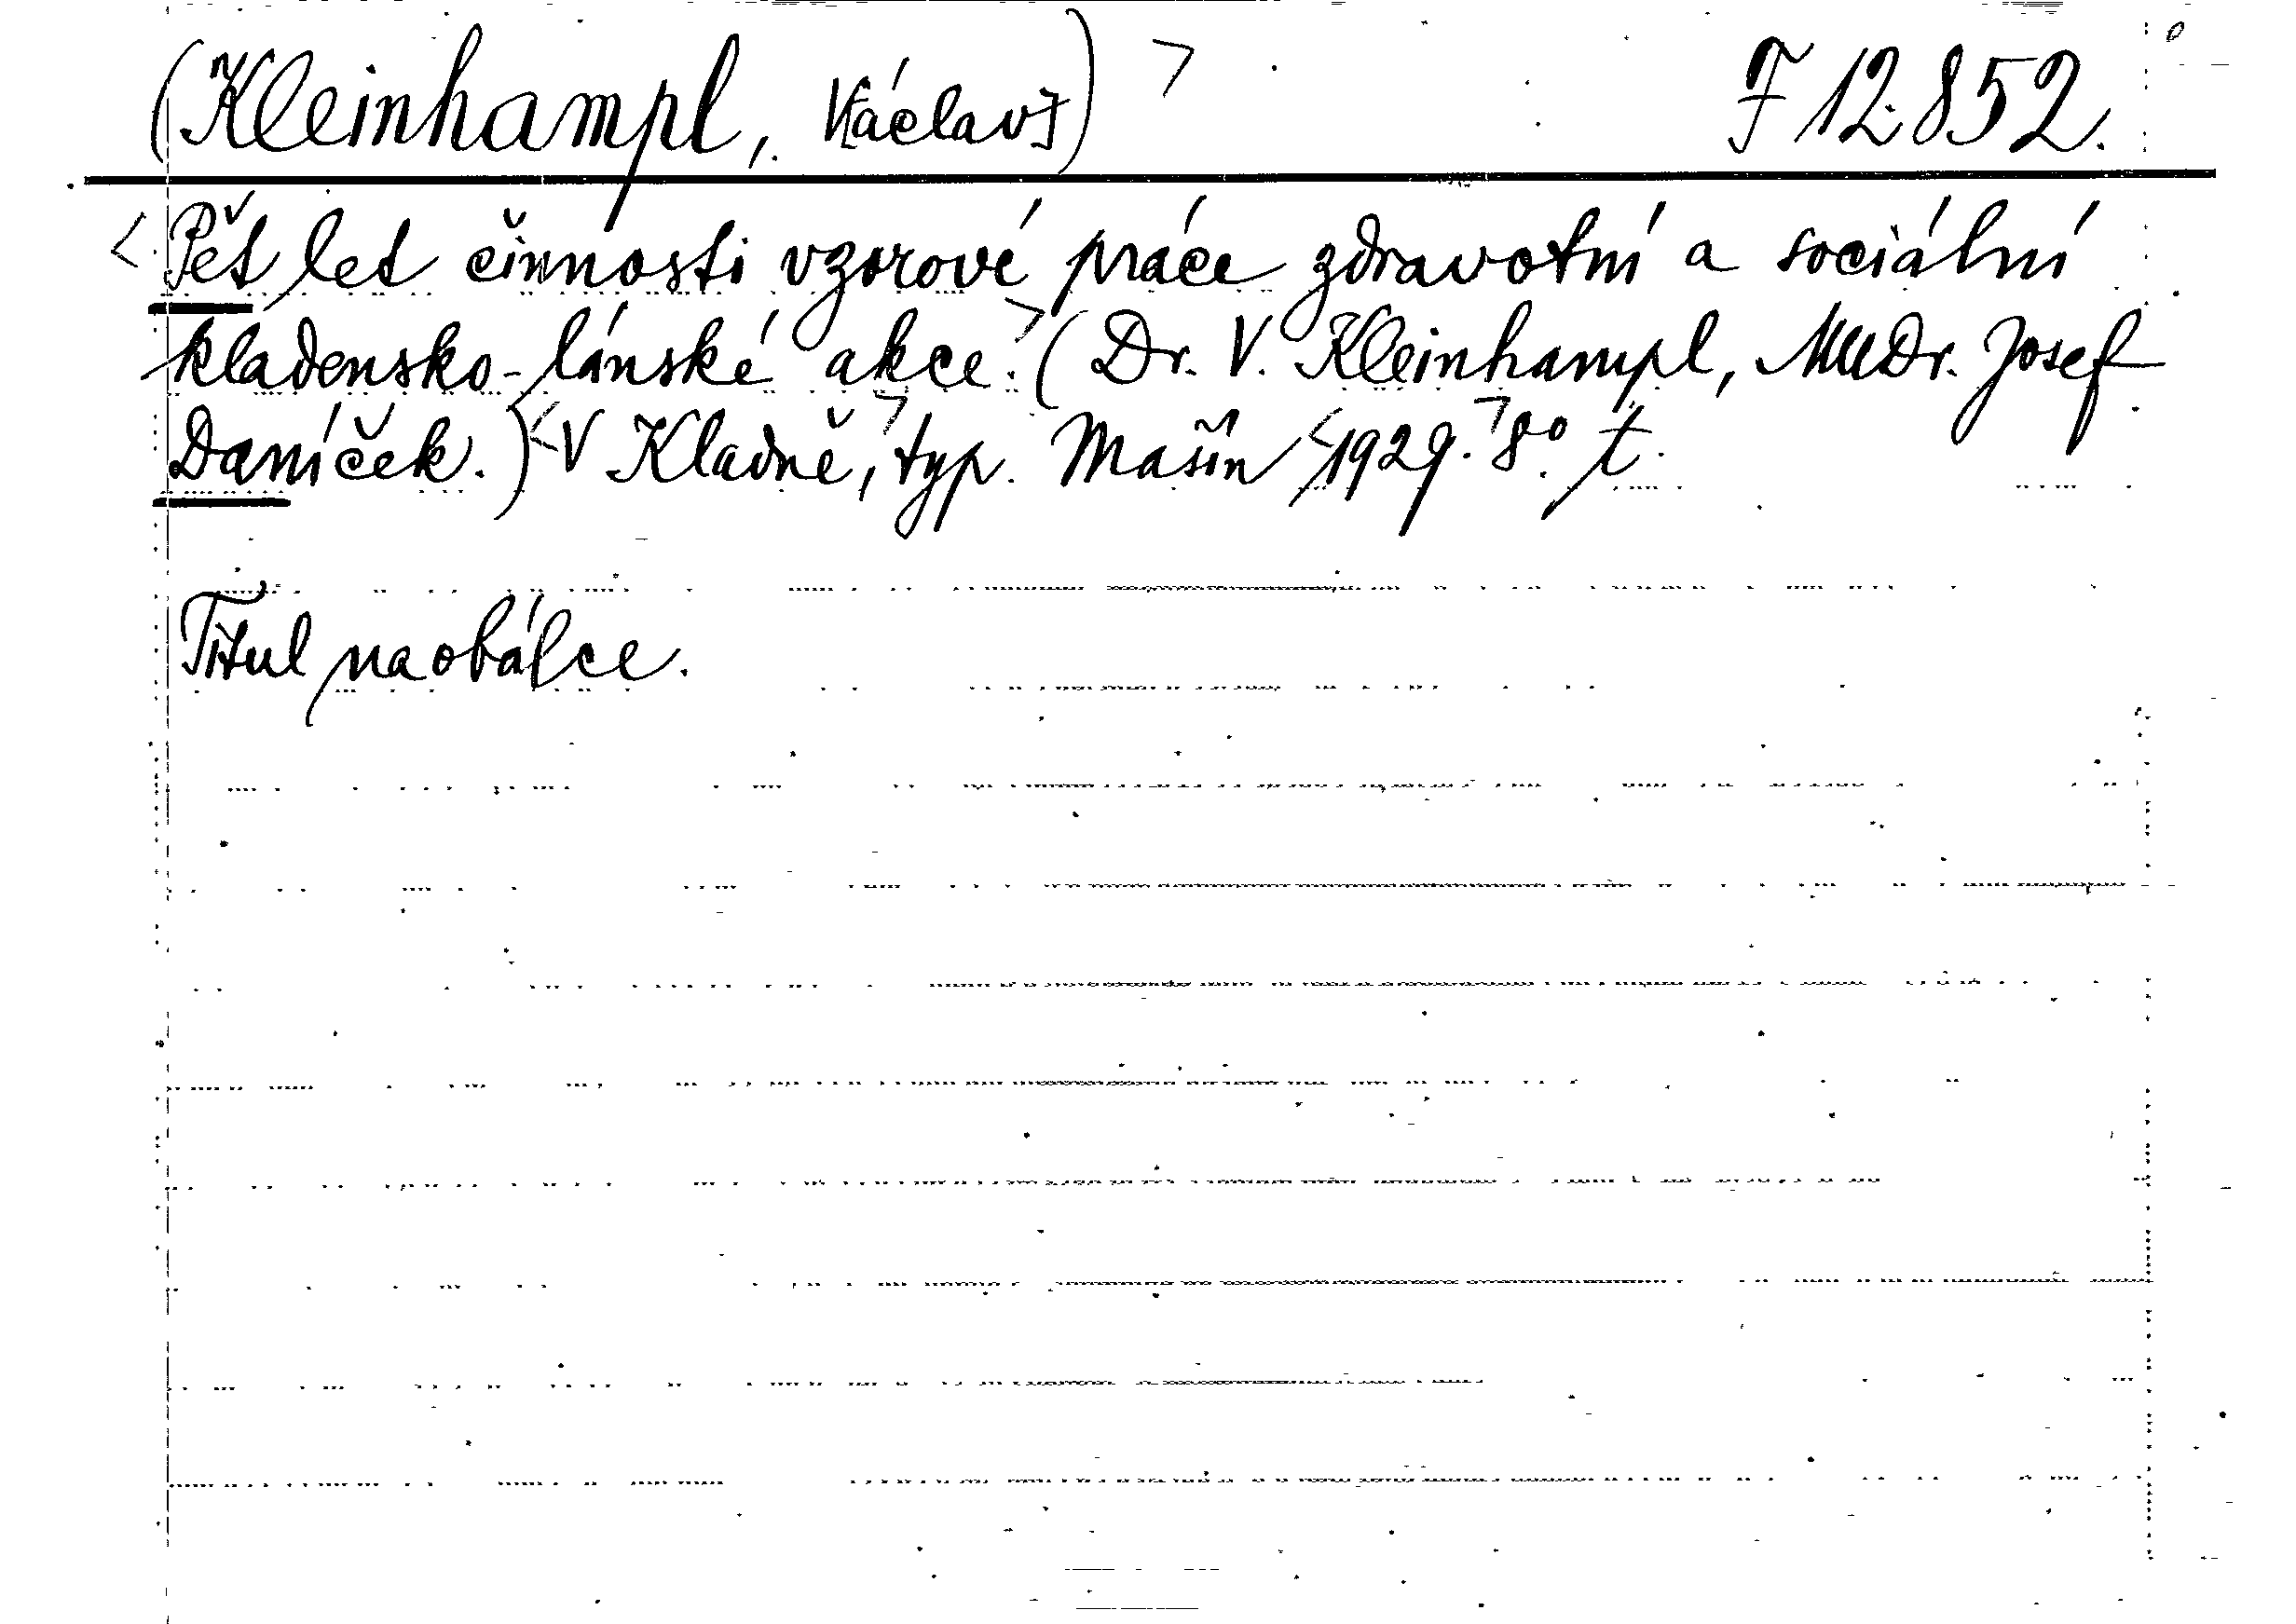 (Kleinhampl, V[áclav]) > F 12.852.
<Pět let činnosti vzorové práce zdravotní a sociální
kladensko-lánské akce.> (Dr. V. Kleinhampl, MUDr. Josef
Daníček.) <V Kladně,> typ. Mašín <1929.> 8°. t.
Titul na obálce.